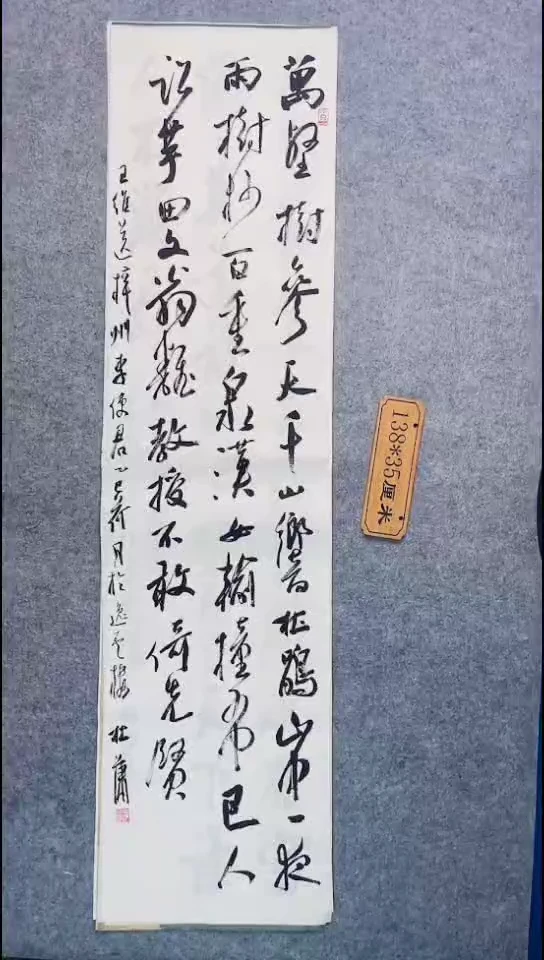 萬壑樹參天千山響杜鵑山中一夜
雨樹杪百重泉漢女輸橦布巴人
訟芋田文翁翻教授不敢倚先賢
王維送梓州李使君乙巳荷月於逸
杜蕭
138*35厘米